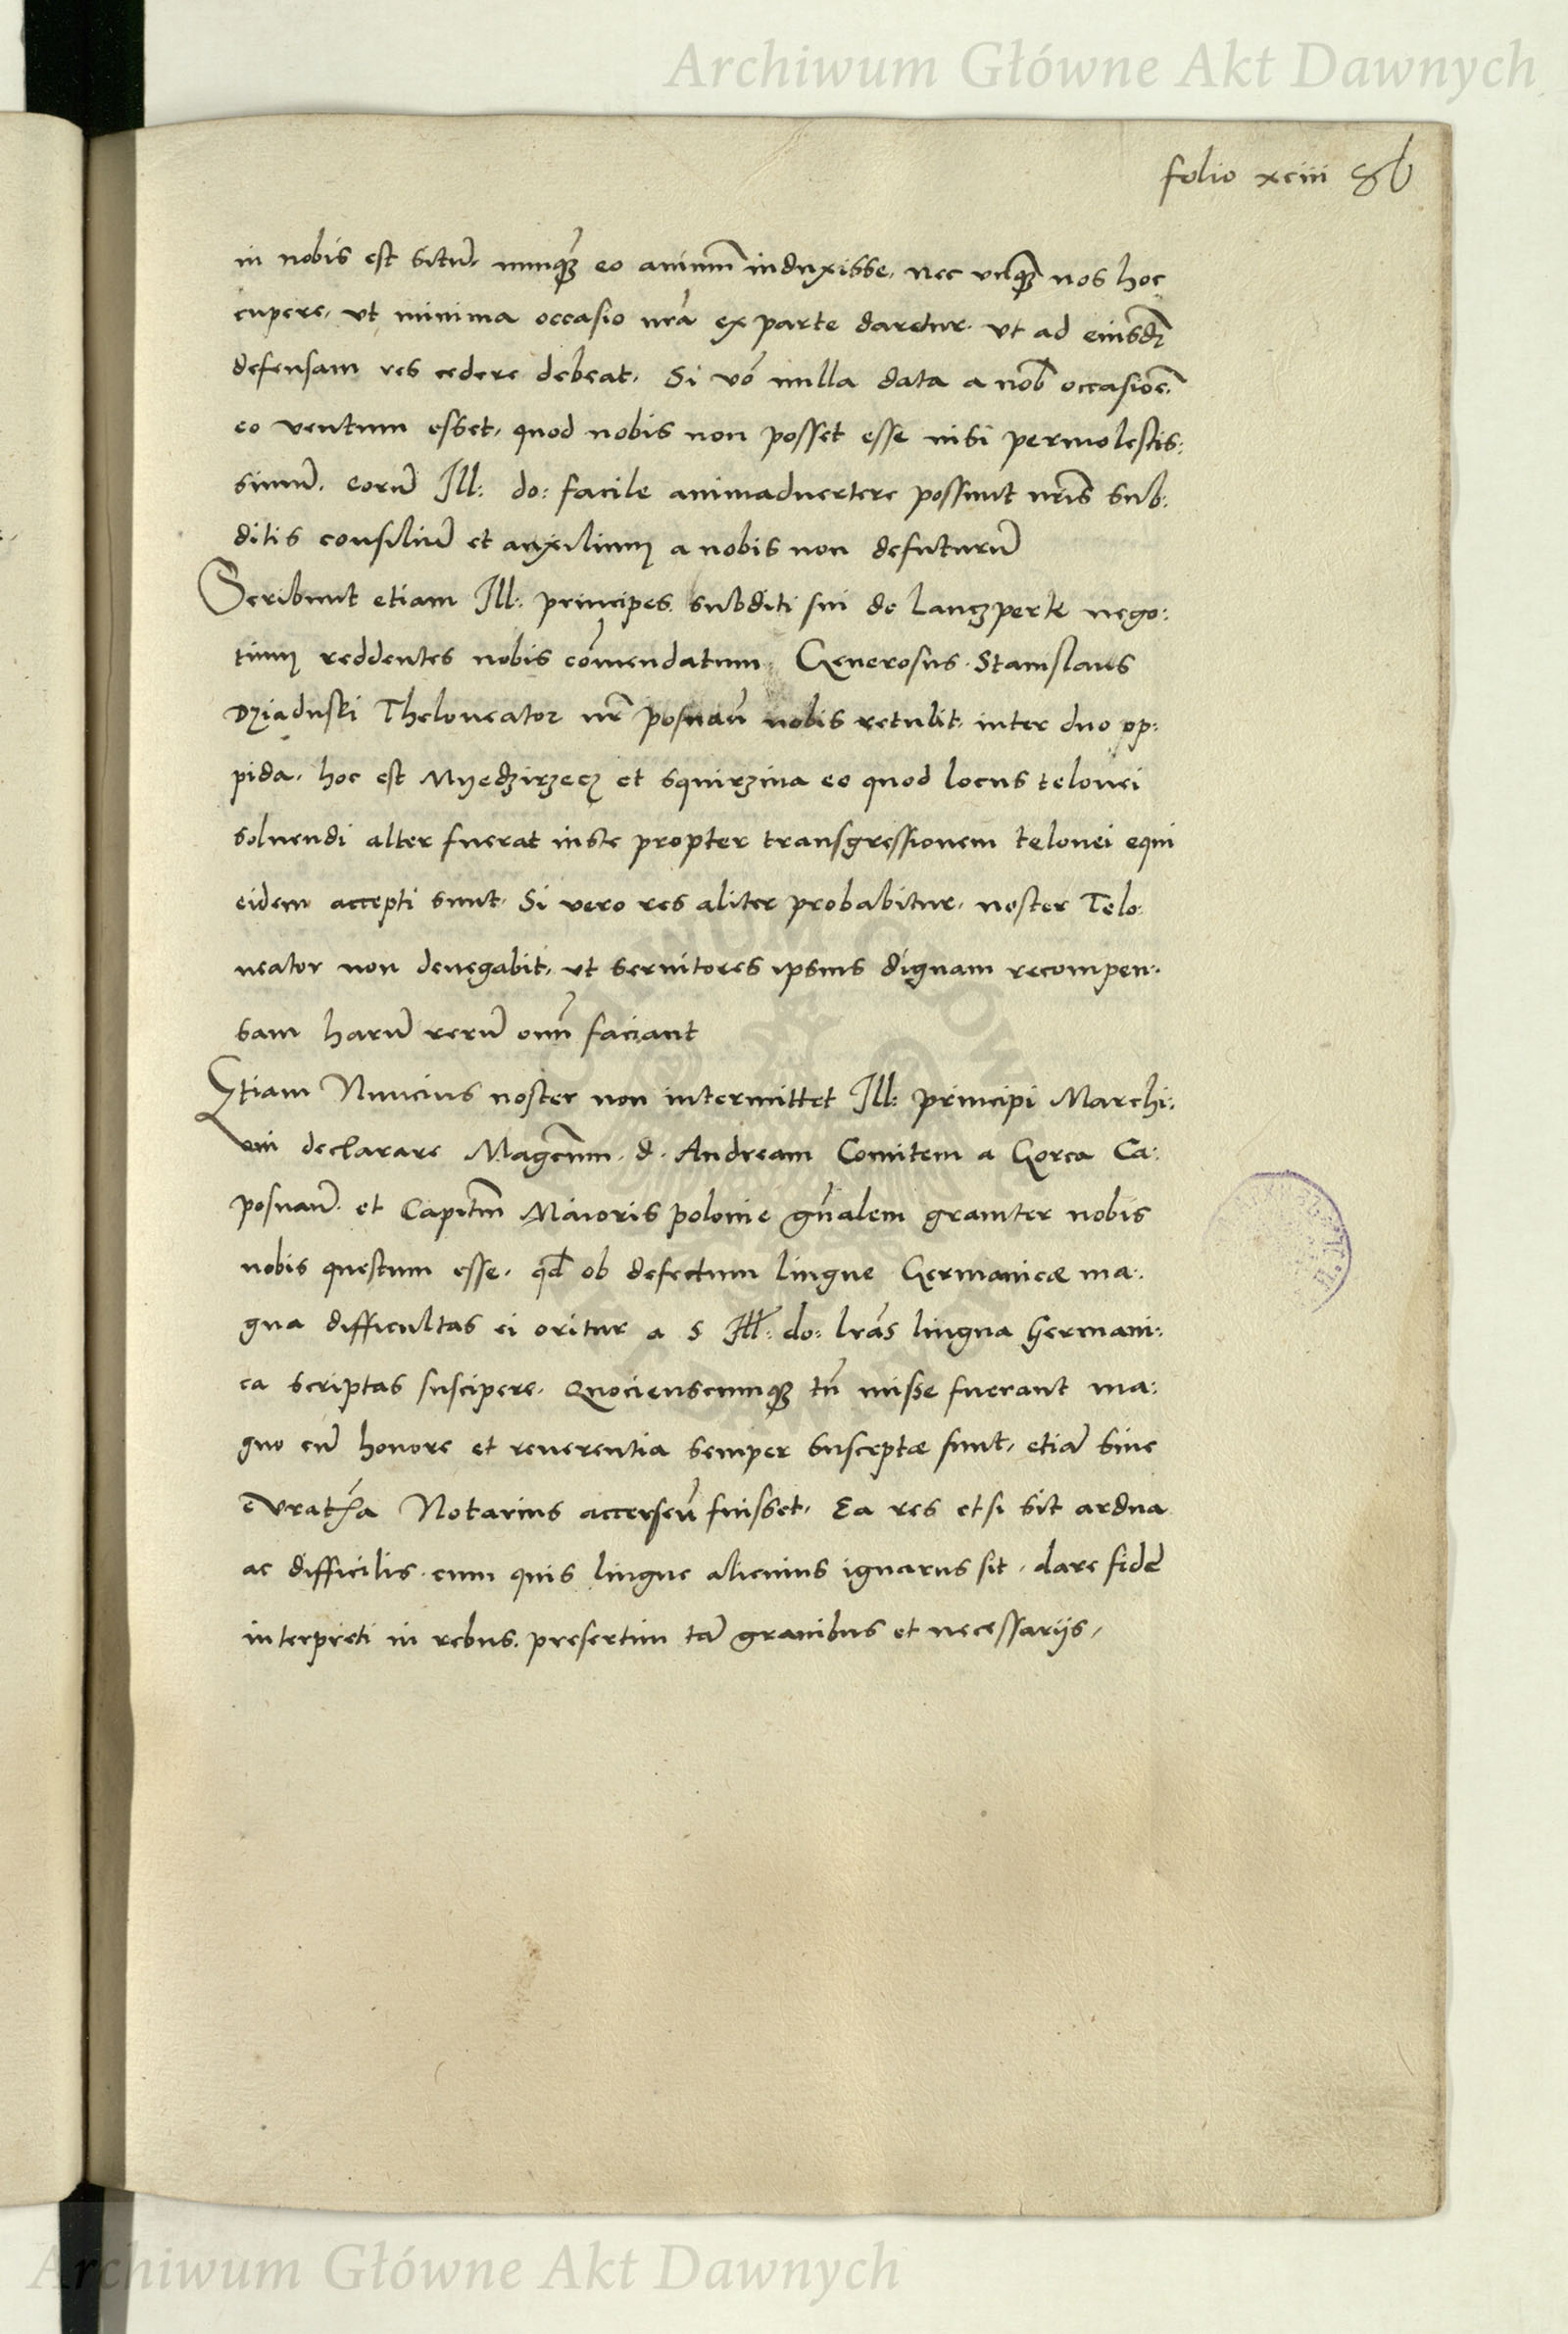 Archiwum Główne Akt Dawnych
folio xciii 86
in nobis est situ̅, nunqȝ eo animu̅ induxisse, nec unqȝ nos hoc
cupere, ut minima occasio nr̅a ex parte daretur. ut ad eiusdȝ
defensam res cedere debeat. Si vo̅ nulla data a nob̅ occasioe̅,
eo ventum esset, quod nobis non posset esse nisi permolestis:
simu̅. eoru̅ Ill: do: facile animaduertere possunt nr̅is sub:
ditis consiliu̅ et auxiliuȝ a nobis non defuturu̅
Scribunt etiam Ill: principes subditi sui de Lanczperk nego:
tiuȝ reddentes nobis com̅endatum. Generosus Stanislaus
Dziaduski Theloneator nr̅ posnan̅ nobis retulit, inter duo op:
pida, hoc est Myedzirzecz et squirzina eo quod locus telonei
soluendi alter fuerat iuste propter transgressionem telonei equi
eidem accepti sunt. Si vero res aliter probabitur, noster Telo:
neator non denegabit, ut seruitores ipsius dignam recompen:
sam haru̅ reru̅ om̅ faciant
Etiam Nuncius noster non intermittet Ill: principi Marchi:
oni declarare Magcum̅ d. Andream Comitem a Gorca Ca:
posnan̅ et Capitm̅ Maioris polonie gn̅alem grauiter nobis
nobis questum esse, qd̅ ob defectum lingue Germanicæ ma:
gna difficultas ei oritur a S Ill: do: lr̅as lingua Germani:
ca scriptas suscipere. Quocienscunqȝ tn̅ misse fuerant ma:
gno cu̅ honore et reuerentia semper susceptæ sunt, etia̅ sine
Notarius fuisset. Ea res etsi sit ardua
ac difficilis cum quis lingue alicuius ignarus sit, dare fide̅
interpreti in rebus presertim ta̅ grauibus et necessariis,
Archiwum Główne Akt Dawnych